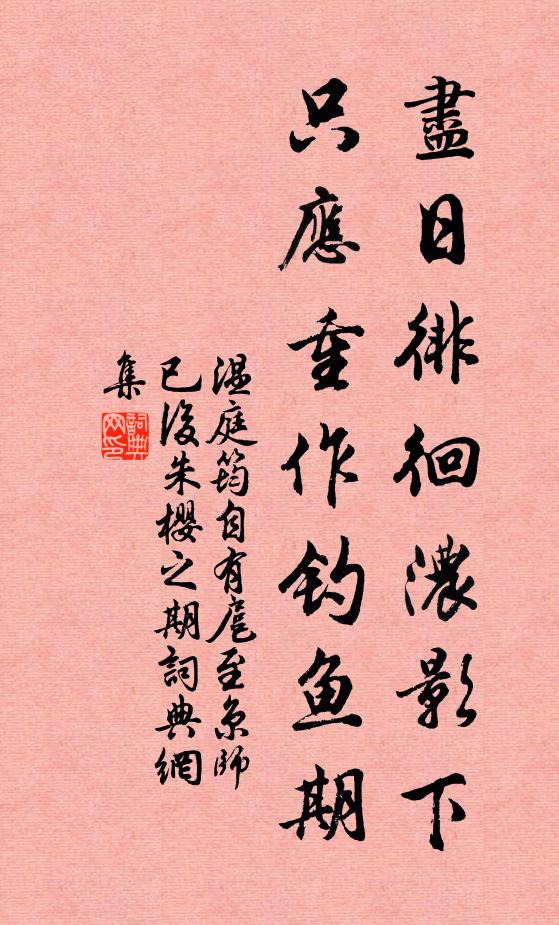 盡日徘徊濃影下
只應重作釣魚期
温庭筠自有扈至京師
已後朱櫻之期詞典網
集
詞典
网印